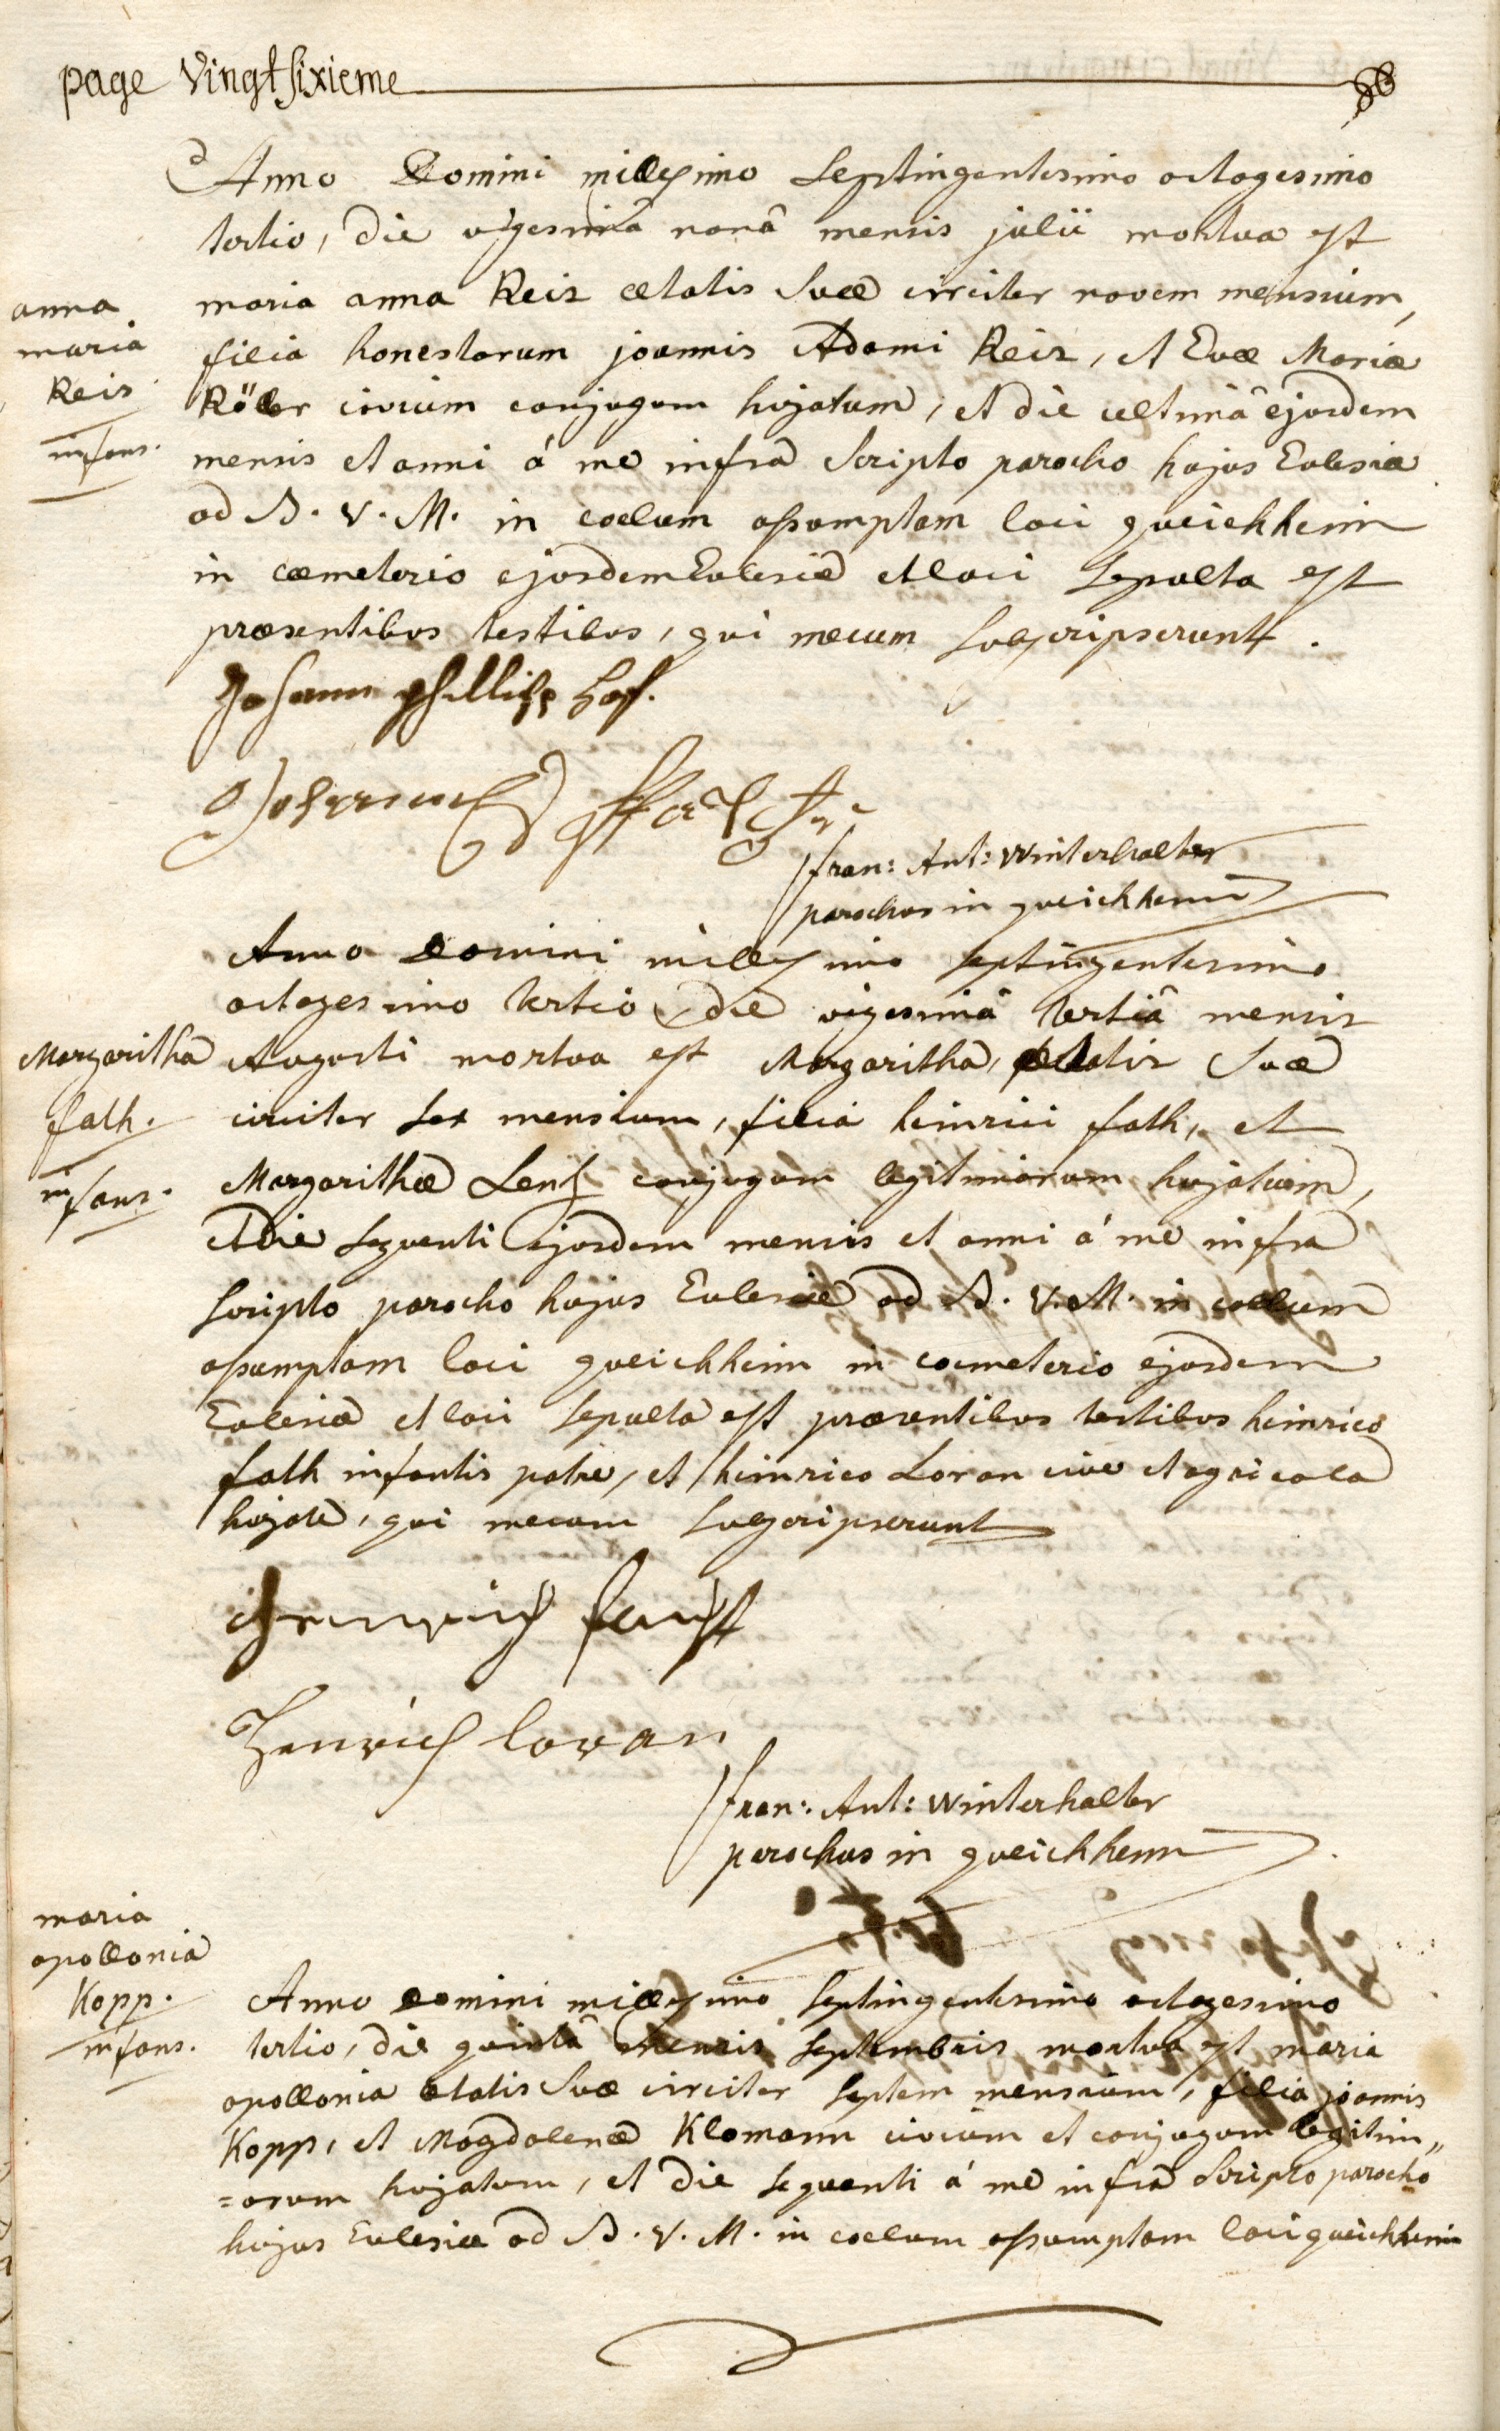 page Vingtsixieme
Anno Domini millesimo Septingentesimo octogesimo
tertio, die vigesimâ nonâ mensis julii mortua est
anna
maria
Reis
infans.
maria anna Reis ætatis Suæ circiter novem mensium,
filia honestorum joannis Adami Reis, et Evæ Mariæ
Röller civium conjugum hujatum, et die ultimâ ejusdem
mensis et anni á me infra Scripto parocho hujus Eclesiæ
ad B. V. M. in coelum assumptam loci queichheim
in cæmeterio ejusdem Eclesiæ et loci Sepulta est
præsentibus testibus, qui mecum Subscripserunt.
Johann phillipp
fran: Ant: Winterhalter
parochus in queichheim
Anno Domini millesimo Septingentesimo
octogesimo tertio die vigesimâ tertiâ mensis
Margaritha
fath.
infans.
Augusti mortua est Margaritha, ætatis Suæ
circiter Sex mensium, filia heinrici fath, et
Margarithæ Lentz conjugum legitimorum hujatum,
et die Sequenti ejusdem mensis et anni á me infra
Scripto parocho hujus Eclesiæ ad B. V. M. in coelum
assumptam loci queichheim in coemeterio ejusdem
Eclesiæ et loci Sepulta est præsentibus testibus heinrico
fath infantis patre, et heinrico Loran cive et agricola
hujate, qui mecum Subscripserunt
Henrich loran
fran: Ant: Winterhalter
parochus in queichheim
maria
apollonia
Kopp.
infans.
Anno Domini millesimo Septingentesimo octogesimo
tertio, die quintâ mensis Septembris mortua est maria
apollonia ætatis Suæ circiter Septem mensium, filia joannis
Kopp, et Magdalenæ Klemann civium et conjugum legitim„
=orum hujatum, et die Sequenti á me infra Scripto parocho
hujus Eclesiæ ad B. V. M. in coelum assumptam loci queichheim